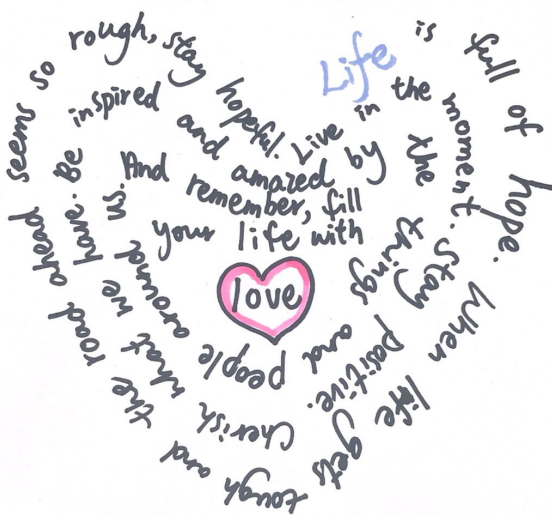 Life is full of hope. When life gets tough and the road ahead seems so rough, stay hopeful. Live in the moment. Stay positive. Cherish what we have. Be inspired and amazed by the things and people around us. And remember, fill your life with love